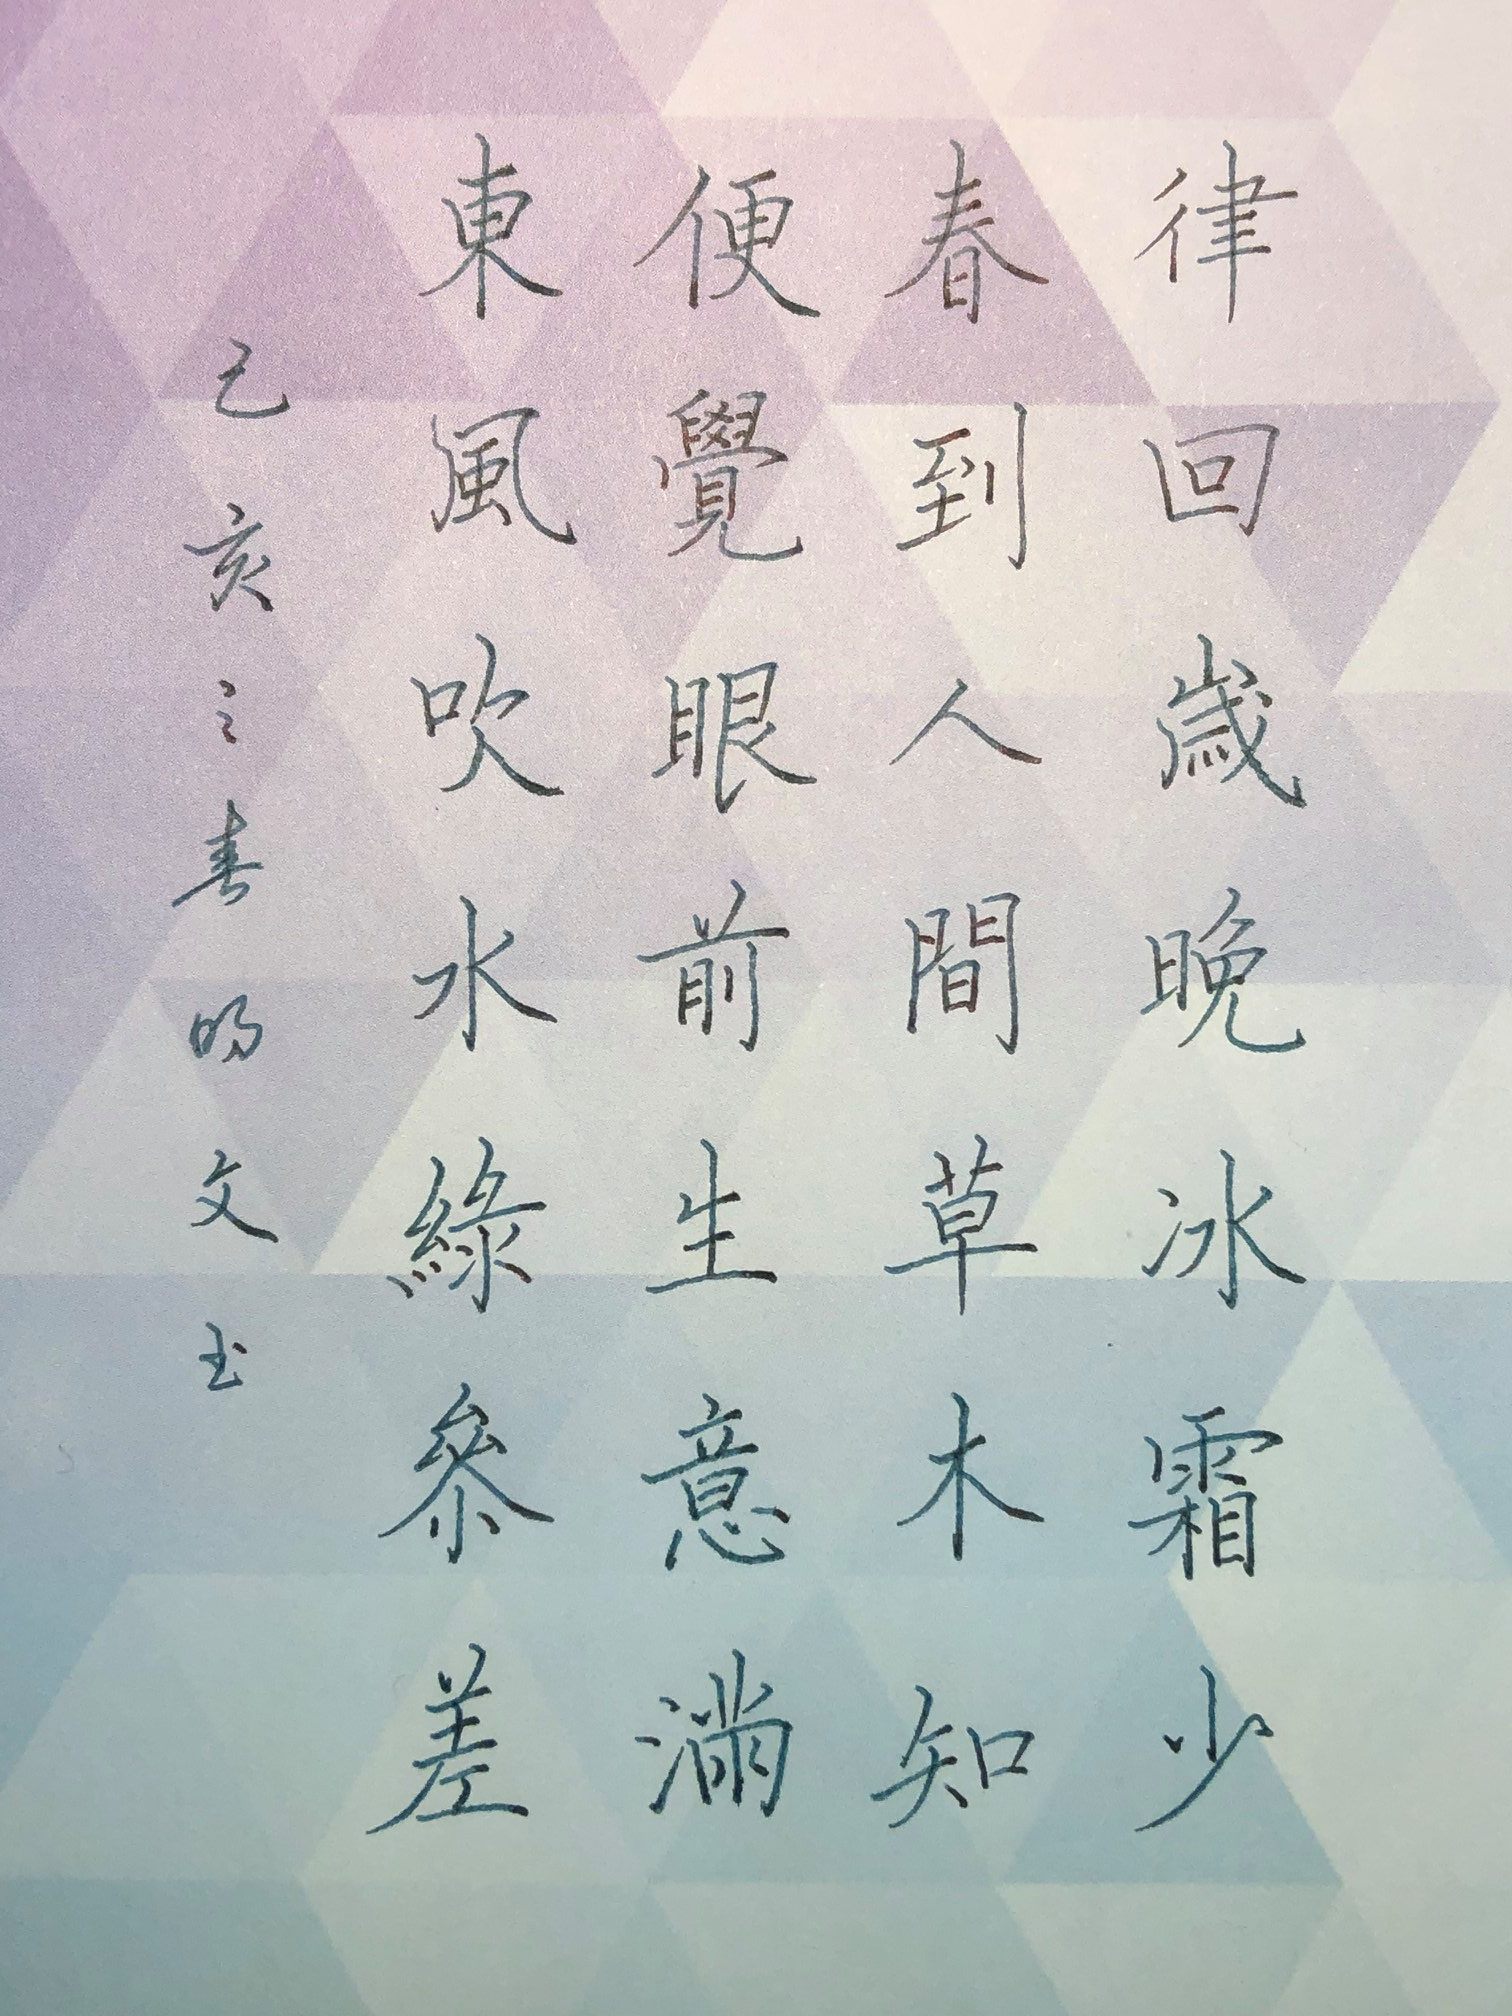 律回歲晚冰霜少
春到人間草木知
便覺眼前生意滿
東風吹水綠參差
己亥之春明文书